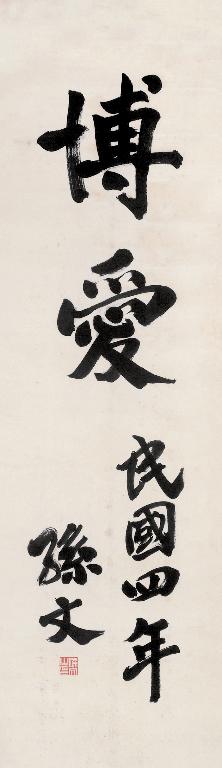 博愛
民國四年
孫文